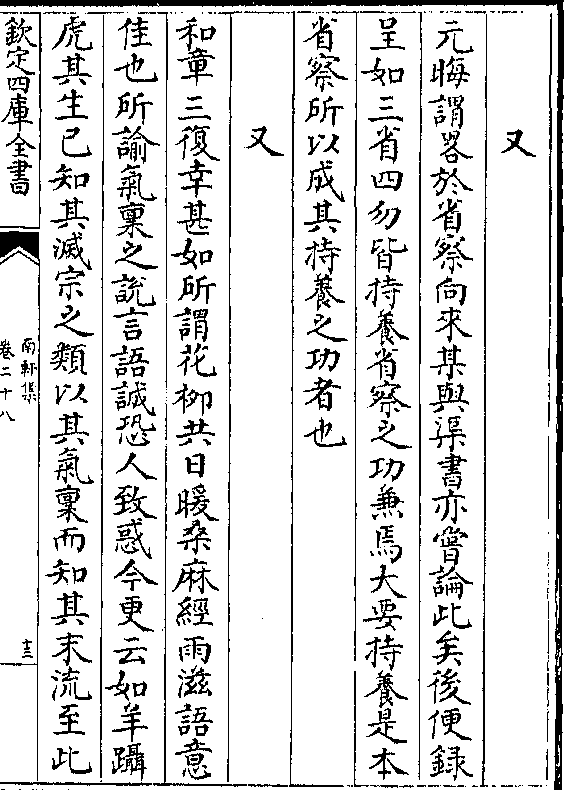 又
元晦謂畧於省察向來某與渠書亦嘗論此矣後便録
呈如三省四勿皆持養省察之功兼焉大要持養是本
省察所以成其持養之功者也
又
和章三復幸甚如所謂花柳共日暖桑麻經雨滋語意
佳也所諭氣稟之說言語誠恐人致惑今更云如羊躡
虎其生已知其滅宗之類以其氣稟而知其末流至此
欽定四庫全書
南軒集
卷二十八
十三